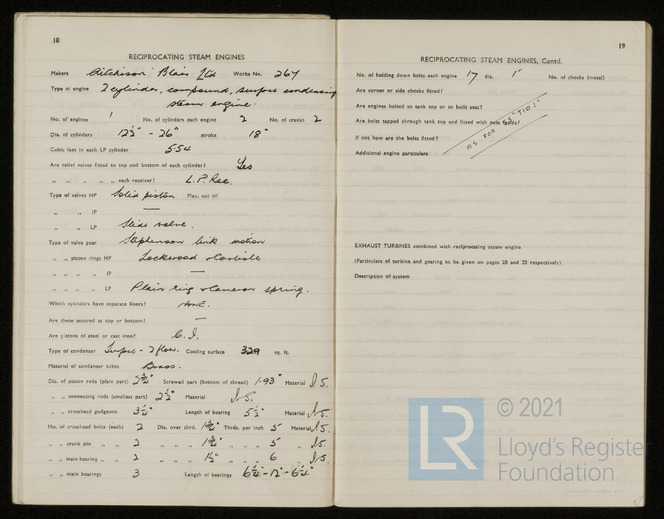 18
RECIPROCATING STEAM ENGINES
Makers Aitchison Blair Ltd Works No. 267
Type of engine 2 cylinder, compound, surface condensing
steam engine.
No. of engines 1 No. of cylinders each engine 2 No. of cranks 2
Dia. of cylinders 12½" - 26" stroke 18"
Cubic feet in each LP cylinder 5.54
Are relief valves fitted to top and bottom of each cylinder? Yes
„ „ „ „ „ each receiver? L.P. Rec.
Type of valves HP Solid piston Max. cut off
„ „ IP —
„ „ LP Slide valve.
Type of valve gear Stephenson link motion
„ „ piston rings HP Lockwood & Carlisle
„ „ „ „ IP —
„ „ „ „ LP Plain ring & Cameron spring.
Which cylinders have separate liners? NONE.
Are these secured at top or bottom? —
Are pistons of steel or cast iron? C.I.
Type of condenser Surface - 2 flow. Cooling surface 329 sq. ft.
Material of condenser tubes Brass.
Dia. of piston rods (plain part) 2¾" Screwed part (bottom of thread) 1.93" Material I.S.
„ „ connecting rods (smallest part) 2½" Material I.S.
„ „ crosshead gudgeons 3½" Length of bearing 5½" Material I.S.
No. of crosshead bolts (each) 2 Dia. over thrd. 1¾" Thrds. per inch 5 Material I.S.
„ „ crank pin „ „ 2 „ „ „ 1¾" „ „ „ 5 „ I.S.
„ „ main bearing „ „ 2 „ „ „ 1½" „ „ „ 6 „ I.S.
„ „ main bearings 3 Length of bearings 6¼" - 12" - 6¼"
19
RECIPROCATING STEAM ENGINES, Contd.
No. of holding down bolts each engine 17 dia. 1" No. of chocks (metal)
Are corner or side chocks fitted?
Are engines bolted to tank top or to built seat?
Are bolts tapped through tank top and fitted with nuts inside?
If not how are the bolts fitted?
Additional engine particulars
AS FOR SS "TID 1"
EXHAUST TURBINES combined with reciprocating steam engine
(Particulars of turbine and gearing to be given on pages 28 and 32 respectively)
Description of system
LR
© 2021
Lloyd's Register
Foundation